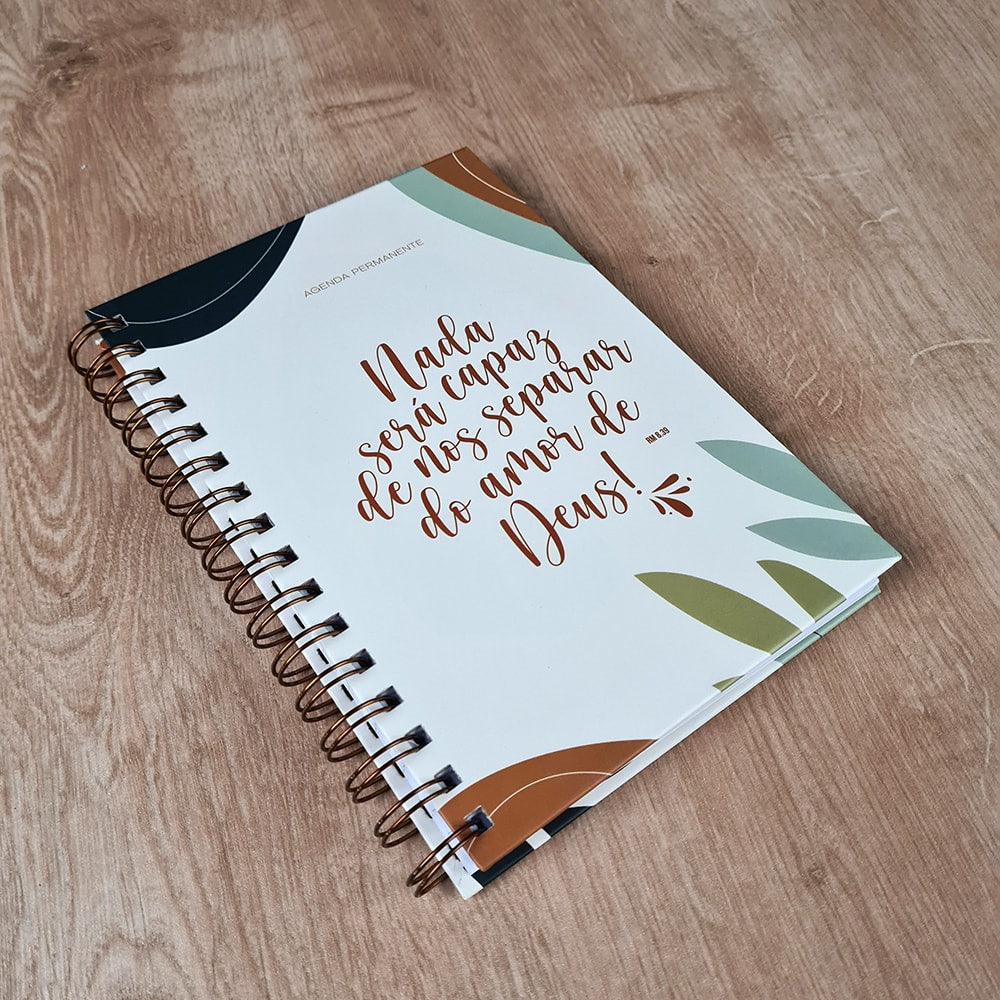 AGENDA PERMANENTE
Nada
será capaz
de nos separar
do amor de
Deus!
RM 8.39